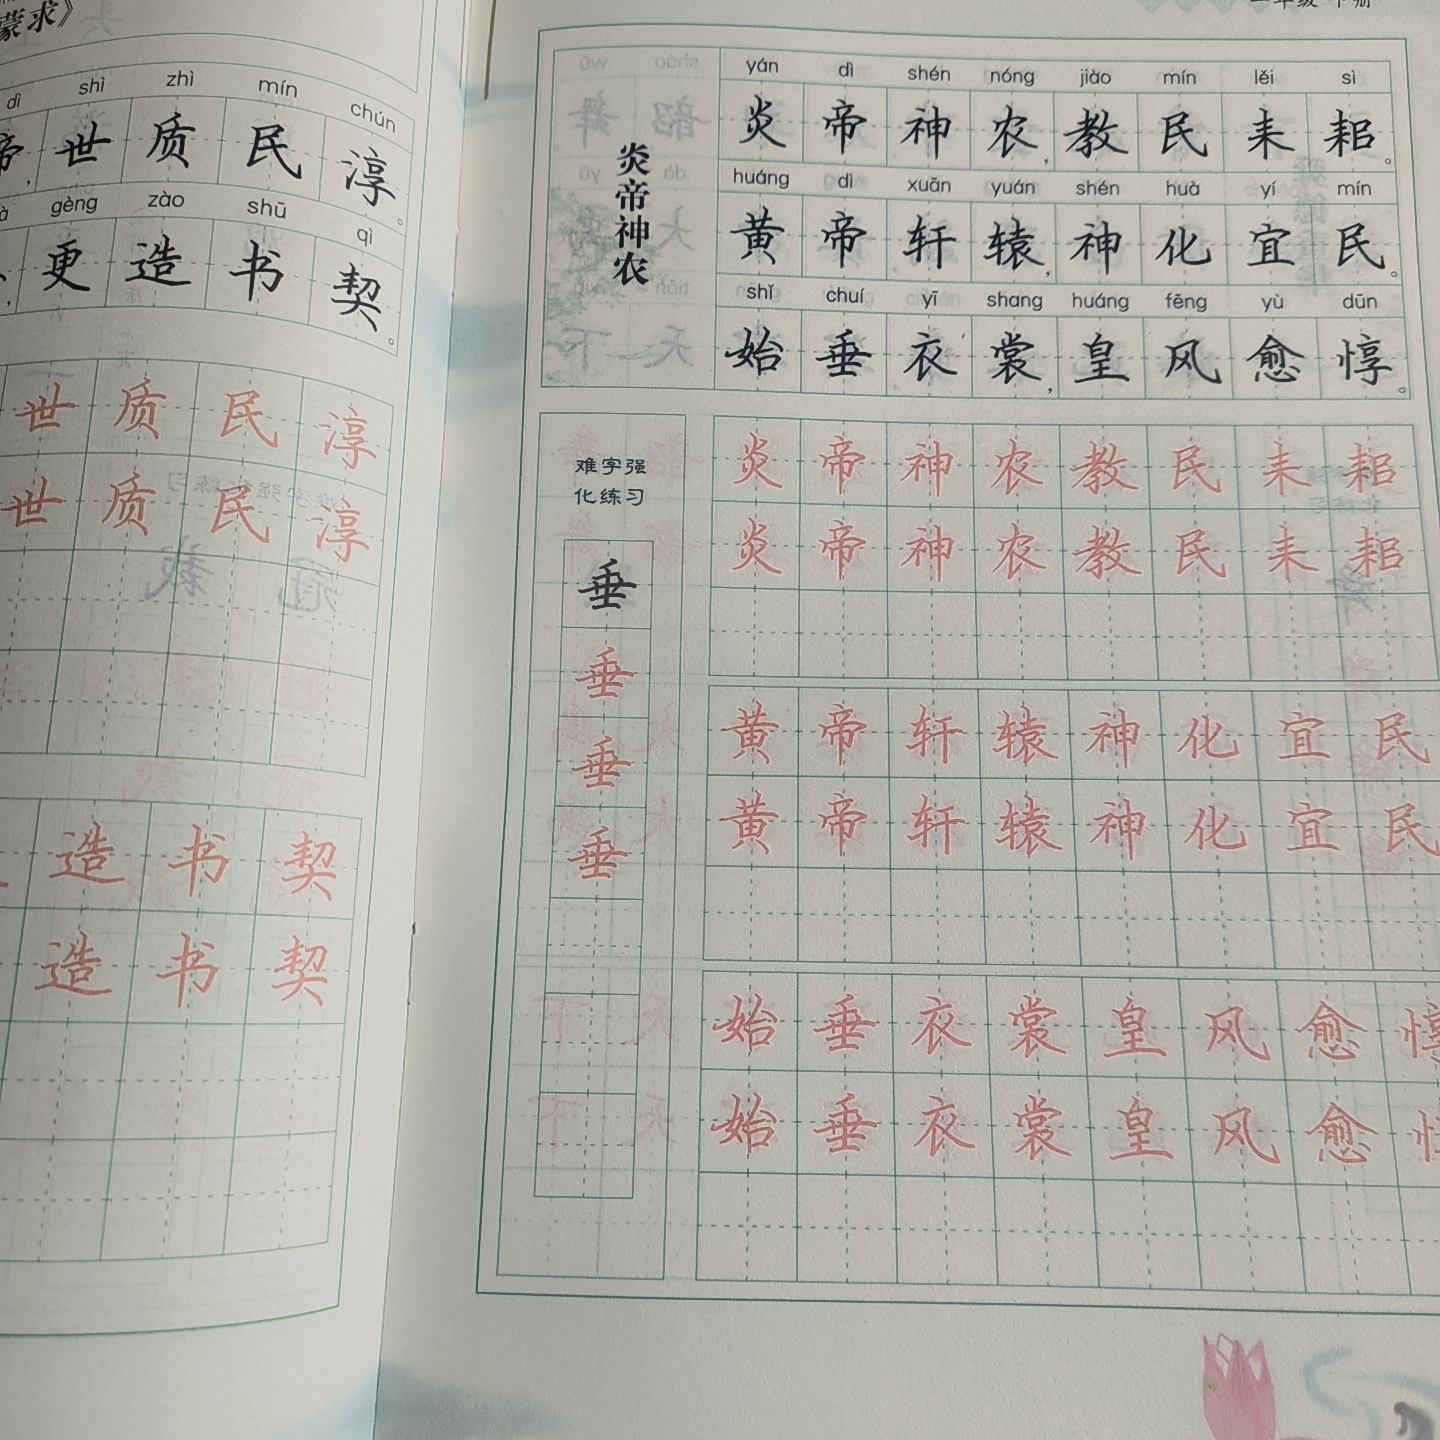 蒙求》
dì shì zhì mín chún
帝，世质民淳。
gèng zào shū qì
更造书契。
世质民淳
世质民淳
造书契
造书契
炎帝神农
yán dì shén nóng jiào mín lěi sì
炎帝神农，教民耒耜。
huáng dì xuān yuán shén huà yí mín
黄帝轩辕，神化宜民。
shǐ chuí yī shang huáng fēng yù dūn
始垂衣裳，皇风愈惇。
难字强
化练习
垂
垂
垂
垂
炎帝神农教民耒耜
炎帝神农教民耒耜
黄帝轩辕神化宜民
黄帝轩辕神化宜民
始垂衣裳皇风愈惇
始垂衣裳皇风愈